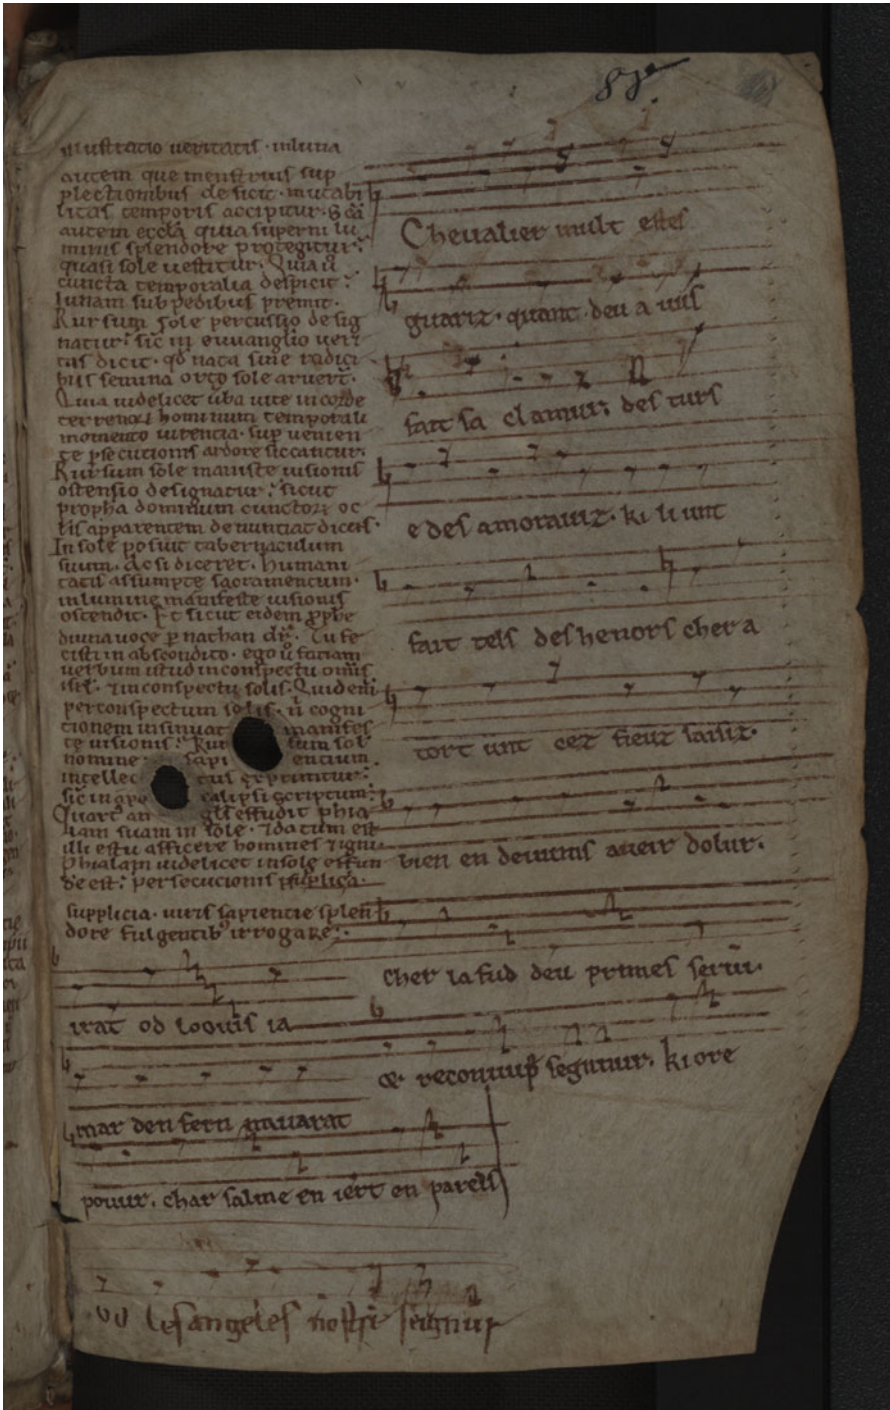 88
illustratio veritatis · inluna
autem que menstruis sup
plectionibus desicit · mutabi
litas temporis accipitur · Scā
autem eccła quia superni lu
minis splendore protegitur ·
quasi sole uestitur · Quia ū
cuncta temporalia despicit ·
lunam sub pedibus premit ·
Rursum sole percussio desig
natur · sic in euuanglio ueri
tas dicit · qđ nata sine radici
bus semina orto sole aruert ·
Quia uidelicet uba uite in corde
terrenoꝝ hominum temporali
momento uirencia · sup uenien
te psecucionis ardore siccantur ·
Rursum sole manifeste uisionis
ostensio designatur · sicut
propha dominum cunctoꝝ oc
lis apparentem denuntiat dicēs ·
In sole posuit tabernaculum
suum · Ac si diceret · humani
tatis assumpte sacramentum ·
in lumine manifeste uisionis
ostendit · Et sicut eidem pphe
diuina uoce p nathan dr · Tu fe
cisti in abscondito · ego ū faciam
uerbum istud in conspectu omīs
isrł · ⁊ in conspectu solis · Quid eni
per conspectum solis · ñ cogni
tionem insinuat manifes
te uisionis · Rursum sol
nomine sapientium
intellectus exprimitur ·
sic in apocalipsi scriptum ·
Quart angłs effudit phia
lam suam in sole · ⁊ datum est
illi estu afficere homines ⁊ igni
Phialam uidelicet in sole effun
de est · persecucionis supplicia ·
supplicia · uiris sapientie splen
dore fulgentib⁹ irrogare ·
Cheualier mult estes
guariz · quant deu a uus
fait sa clamur · des turs
e des amorauiz · ki li unt
fait tels deshenors cher a
tort unt cez fieuz saisiz ·
bien en deuums aueir dolur ·
cher la fud deu primes serui ·
ce reconuup segnuur · ki ore
irat od loouis ia
mar denfern nauarat
pouur · char salme en iert en pareis
od les angeles nostri seignur